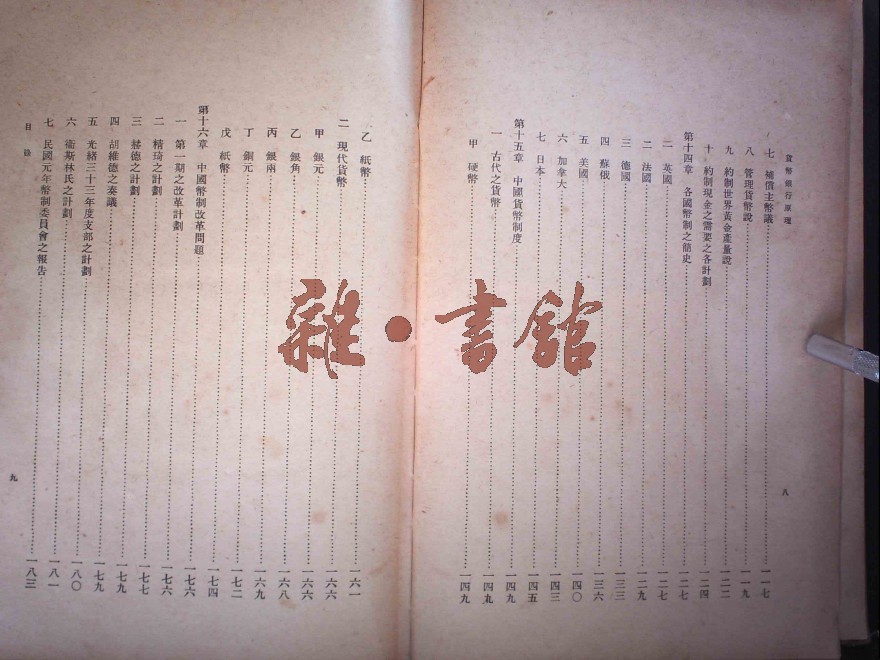 貨幣銀行原理
七 補償主幣議 一一七
八 管理貨幣說 一一九
九 約制世界黃金產量說 一二二
十 約制現金之需要之各計劃 一二四
第十四章 各國幣制之簡史 一二七
一 英國 一二七
二 法國 一二九
三 德國 一三三
四 蘇俄 一三六
五 美國 一四〇
六 加拿大 一四三
七 日本 一四五
第十五章 中國貨幣制度 一四九
一 古代之貨幣 一四九
甲 硬幣 一四九
八
乙 紙幣 一六一
二 現代貨幣 一六六
甲 銀元 一六六
乙 銀角 一六八
丙 銀兩 一六九
丁 銅元 一七二
戊 紙幣 一七四
第十六章 中國幣制改革問題 一七六
一 第一期之改革計劃 一七六
二 精琦之計劃 一七七
三 赫德之計劃 一七九
四 胡維德之奏議 一七九
五 光緒三十三年度支部之計劃 一八〇
六 衛斯林氏之計劃 一八一
七 民國元年幣制委員會之報告 一八三
目錄
九
雜·書館